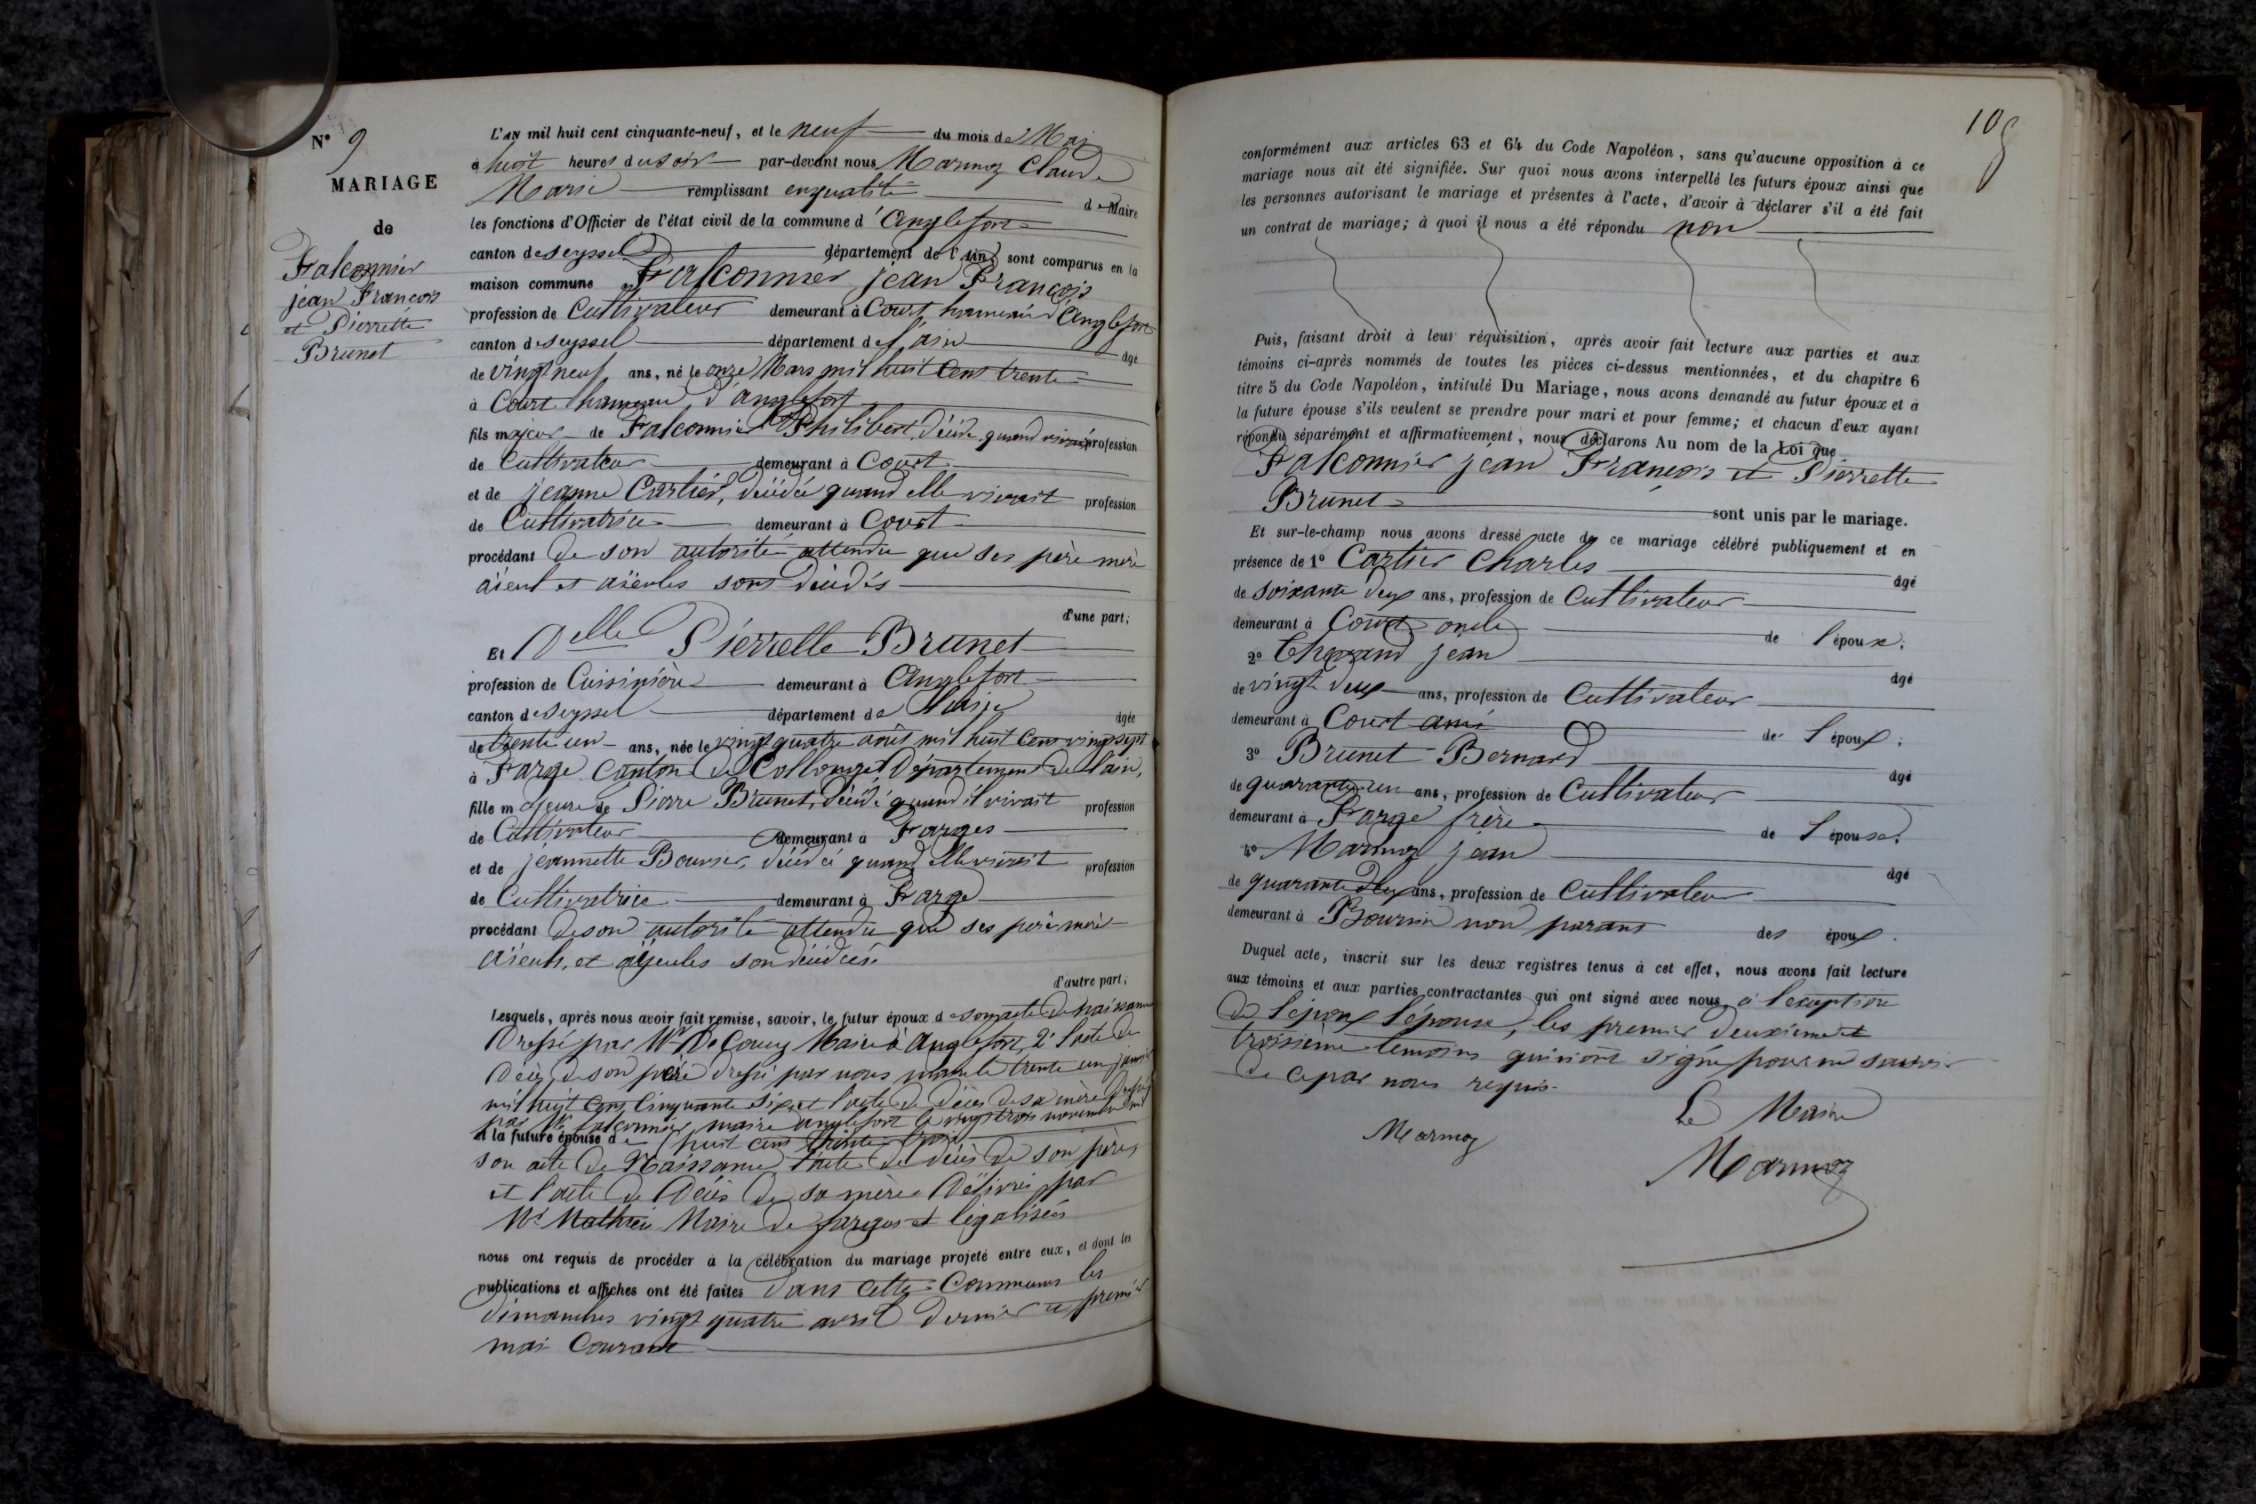 N° 9
MARIAGE
de
Falconnier
jean François
et Pierrette
Brunet
L'AN mil huit cent cinquante-neuf, et le neuf du mois de Mai
à huit heures du soir par-devant nous Marmoz Claude
Marie remplissant en qualité de Maire
les fonctions d'Officier de l'état civil de la commune d'Anglefort
canton de Seyssel département de l'ain sont comparus en la
maison commune Falconnier jean François
profession de Cultivateur demeurant à Court hameau d'Anglefort
canton de seyssel département de l'ain âgé
de vingt neuf ans, né le onze Mars mil huit Cent trente
à Court hameau d'anglefort
fils majeur de Falconnier Philibert, décédé quand vivait profession
de Cultivateur demeurant à Court
et de jeanne Cartier, décédée quand elle vivait profession
de Cultivatrice demeurant à Court
procédant de son autorité attendu que ses père mère
aïeul et aïeules sont décédés
d'une part;
Et Delle Pierrette Brunet
profession de Cuisinière demeurant à Anglefort
canton de Seyssel département de l'ain âgée
de trente un ans, née le vingt quatre août mil huit Cent vingt sept
à Farge Canton de Collonges Département de l'ain,
fille majeure de Pierre Brunet, décédé quand il vivait profession
de Cultivateur demeurant à Farges
et de jeannette Bouvier, décédée quand elle vivait profession
de Cultivatrice demeurant à Farge
procédant de son autorité attendu que ses père mère
aïeuls, et aïeules son décédés
d'autre part;
Lesquels, après nous avoir fait remise, savoir, le futur époux de son acte de naissance
Dressé par Mr De Maire à Anglefort, 2° l'acte de
décès de son père dressé par nous maire le trente un janvier
mil huit Cent Cinquante six et l'acte de décès de sa mère dressé
par Mr falconnier maire d'anglefort le vingt trois novembre mil
et la future épouse de huit cent trente trois
son acte de Naissance l'acte de décès de son père,
et l'acte de Décès de sa mère Délivrés par
Mr Mathieu Maire de farges et légalisés
nous ont requis de procéder à la célébration du mariage projeté entre eux, et dont les
publications et affiches ont été faites dans cette Commune les
dimanches vingt quatre avril dernier et premier
mai Courant
109
conformément aux articles 63 et 64 du Code Napoléon, sans qu'aucune opposition à ce
mariage nous ait été signifiée. Sur quoi nous avons interpellé les futurs époux ainsi que
les personnes autorisant le mariage et présentes à l'acte, d'avoir à déclarer s'il a été fait
un contrat de mariage; à quoi il nous a été répondu non
Puis, faisant droit à leur réquisition, après avoir fait lecture aux parties et aux
témoins ci-après nommés de toutes les pièces ci-dessus mentionnées, et du chapitre 6
titre 5 du Code Napoléon, intitulé Du Mariage, nous avons demandé au futur époux et à
la future épouse s'ils veulent se prendre pour mari et pour femme; et chacun d'eux ayant
répondu séparément et affirmativement, nous déclarons Au nom de la Loi que
Falconnier jean François et Pierrette
Brunet sont unis par le mariage.
Et sur-le-champ nous avons dressé acte de ce mariage célébré publiquement et en
présence de 1° Cartier Charles âgé
de soixante deux ans, profession de Cultivateur
demeurant à Court oncle de l'époux;
2° jean âgé
de vingt deux ans, profession de Cultivateur
demeurant à Court ami de l'époux;
3° Brunet Bernard âgé
de quarante un ans, profession de Cultivateur
demeurant à Farge frère de l'épouse.
4° Marmoz jean âgé
de quarante deux ans, profession de Cultivateur
demeurant à non parant des époux.
Duquel acte, inscrit sur les deux registres tenus à cet effet, nous avons fait lecture
aux témoins et aux parties contractantes qui ont signé avec nous, à l'exception
de l'époux l'épouse, les premier deuxieme et
troisième temoins qui n'ont signé pour ne savoir
de ce par nous requis.
Le Maire
Marmoz
Marmoz